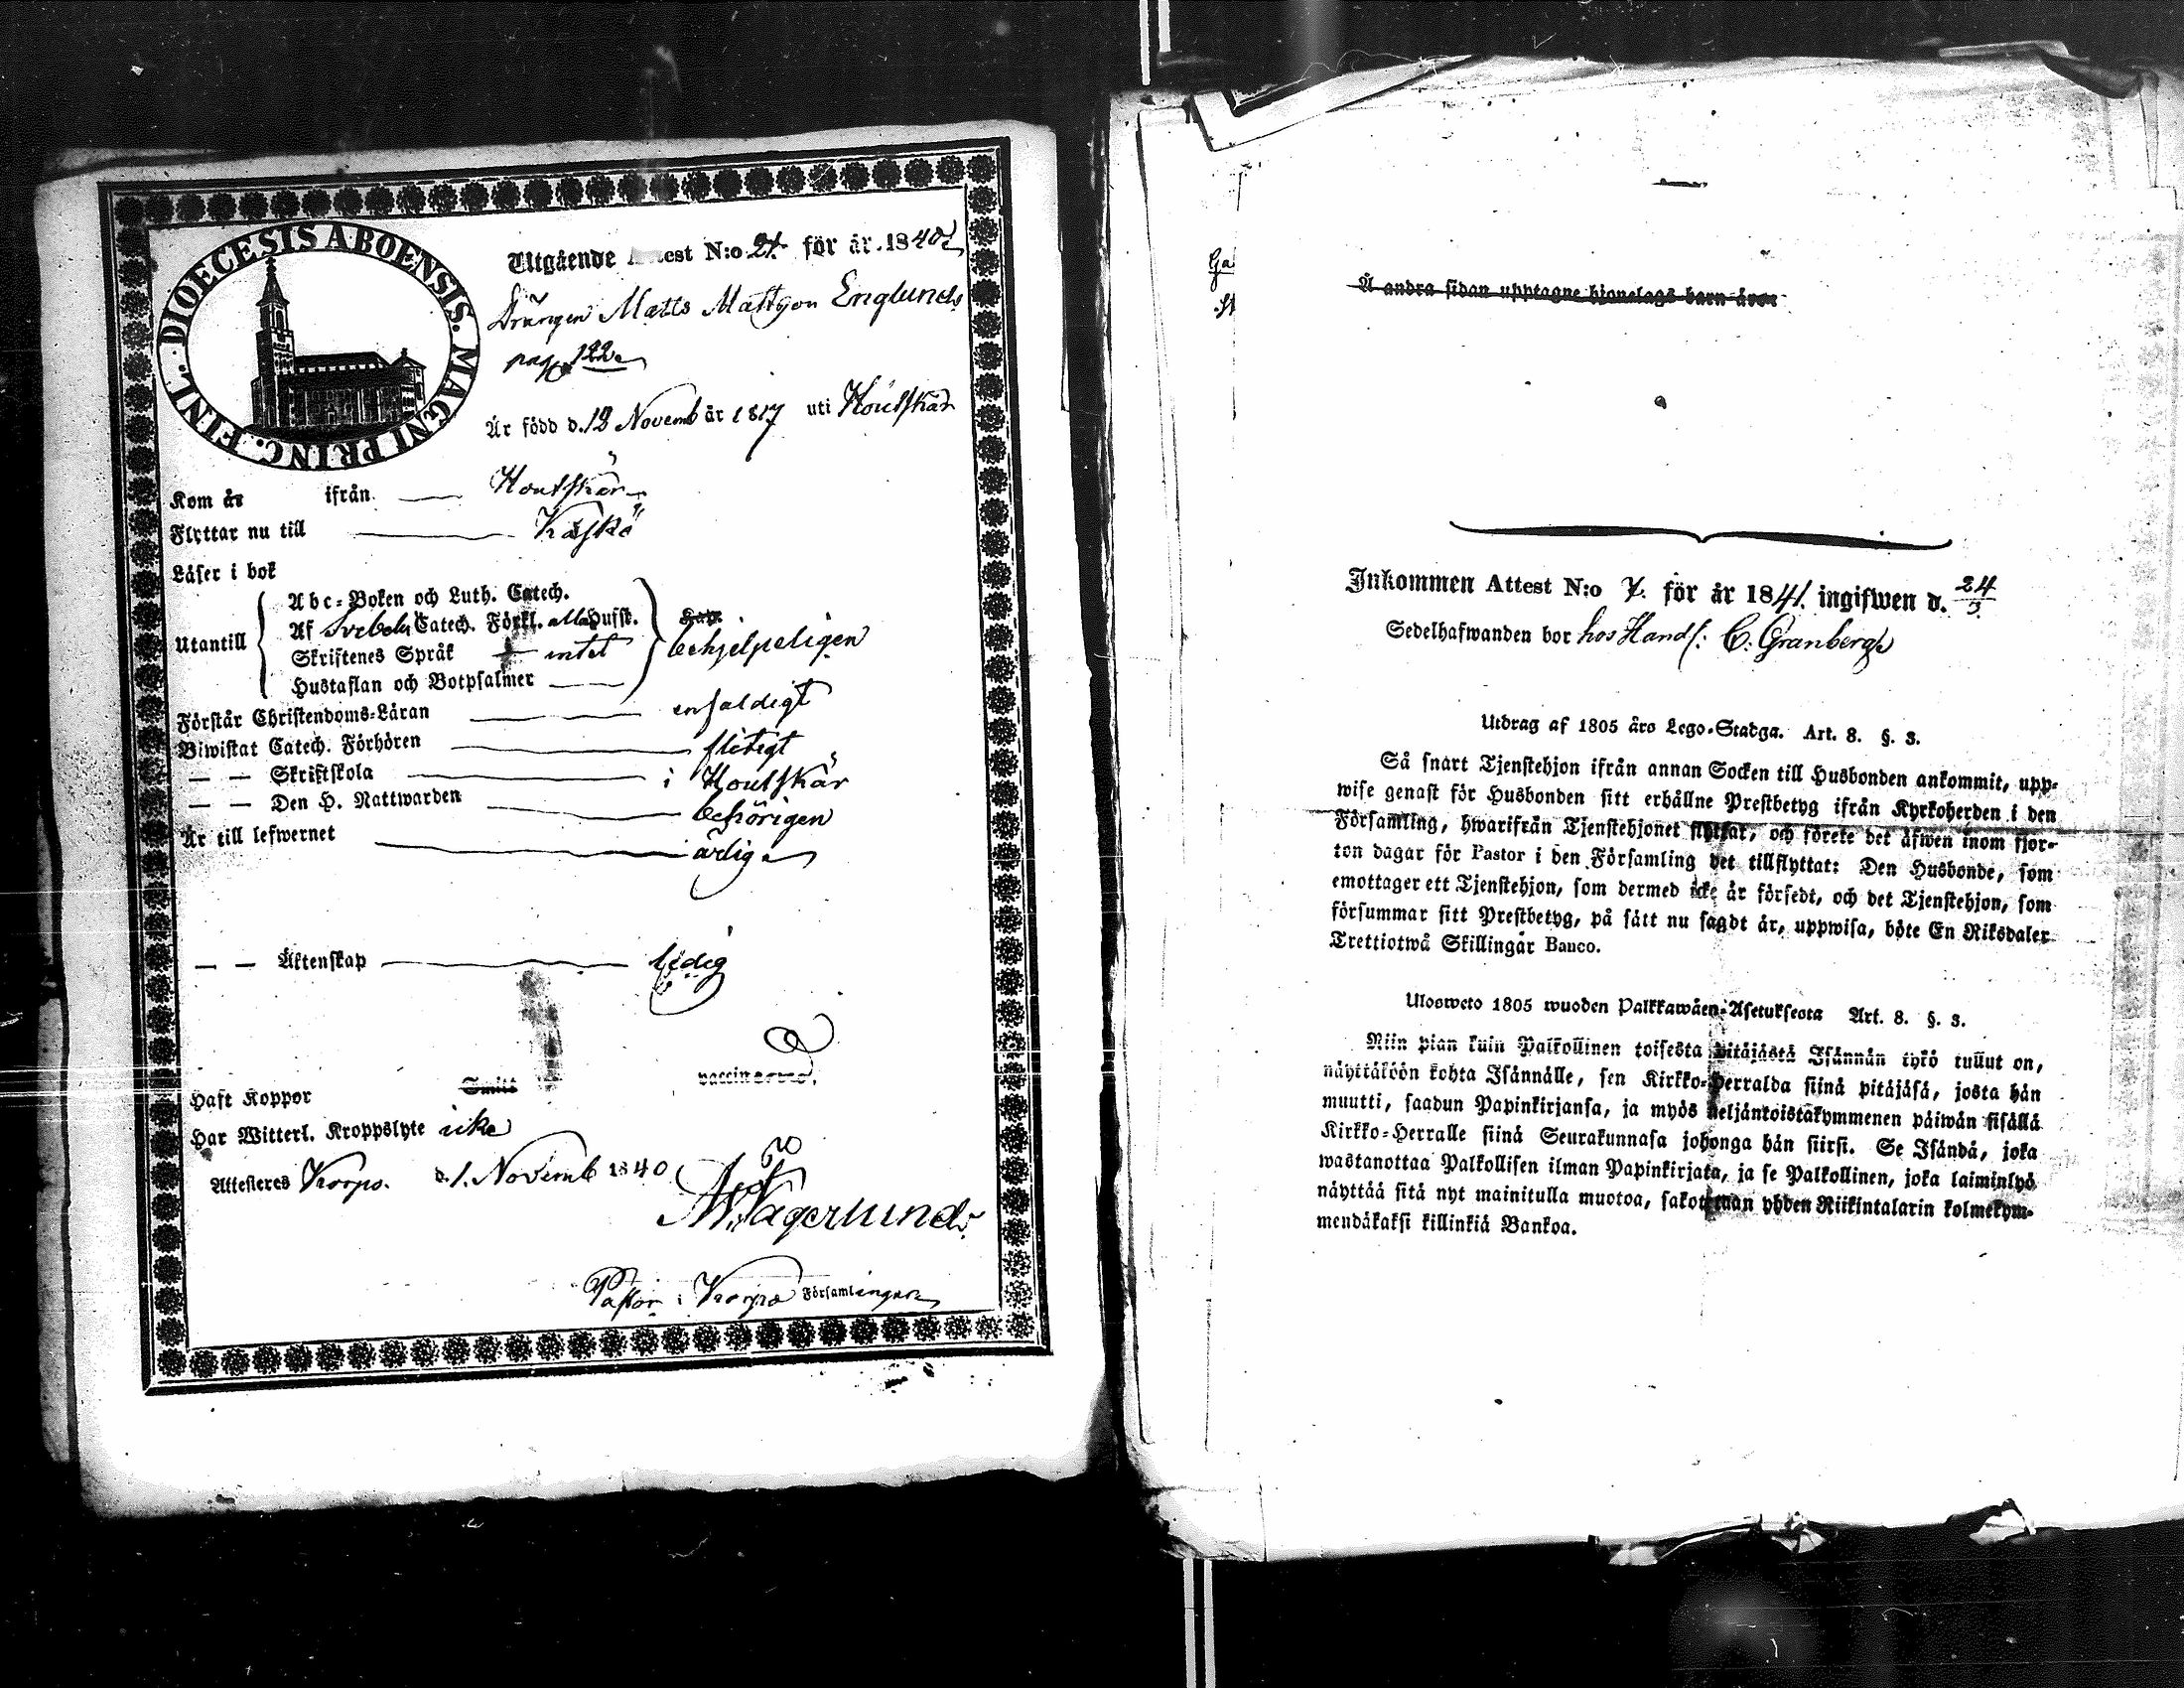 DIOECESIS ABOENSIS. MAGNI PRINC. FINL.
Utgående Attest N:o 21. för år 1840
Drängen Matts Mattson Englund
pag. 122
Är född d. 12 Novemb år 1817 uti Houtskär
Kom år ifrån Houtskär
Flyttar nu till Kaskö
Läser i bok
Utantill
Abc-Boken och Luth. Catech.
Af Svebelii Catech. Förkl. alla Hufst.
Skriftenes Språk intet
Hustaflan och Botpsalmer
behjelpeligen
Förstår Christendoms-Läran enfaldigt
Biwistat Catech. Förhören flitigt
— — Skriftskola i Houtskär
— — Den H. Nattwarden behörigen
Är till lefwernet ärlig
— — Äktenskap ledig
Haft Koppor vaccinerad.
Har Witterl. Kroppslyte icke
Attesteras Korpo. d. 1. Novemb 1840
Lagerlund
Pastor i Korpo Församlingar
Ga
St
Å andra sidan upptagne hjonelags barn äro:
Inkommen Attest N:o 7. för år 1841. ingifwen d. 24/3
Sedelhafwanden bor hos Handl: C. Granberg
Utdrag af 1805 års Lego-Stadga. Art. 8. §. 3.
Så snart Tjenstehjon ifrån annan Socken till Husbonden ankommit, upp-
wise genast för Husbonden sitt erhållne Prestbetyg ifrån Kyrkoherden i den
Församling, hwarifrån Tjenstehjonet flyttat, och förete det äfwen inom fjor-
ton dagar för Pastor i den Församling det tillflyttat: Den Husbonde, som
emottager ett Tjenstehjon, som dermed icke är försedt, och det Tjenstehjon, som
försummar sitt Prestbetyg, på sätt nu sagdt är, uppwisa, böte En Riksdaler
Trettiotwå Skillingar Banco.
Ulosweto 1805 wuoden Palkkawäen-Asetuksesta Art. 8. §. 3.
Niin pian kuin Palkollinen toisesta pitäjästä Isännän tykö tullut on,
näyttäköön kohta Isännälle, sen Kirkko-Herralda siinä pitäjäsä, josta hän
muutti, saadun Papinkirjansa, ja myös neljäntoistakymmenen päiwän sisällä
Kirkko-Herralle siinä Seurakunnasa johonga hän siirsi. Se Isändä, joka
wastanottaa Palkollisen ilman Papinkirjata, ja se Palkollinen, joka laiminlyö
näyttää sitä nyt mainitulla muotoa, sakoitetaan yhden Riikintalarin kolmekym-
mendäkaksi killinkiä Bankoa.